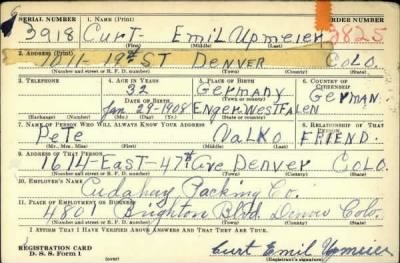 SERIAL NUMBER 1. NAME (Print) ORDER NUMBER
3918 Curt- Emil Upmeier 2825
(First) (Middle) (Last)
2. ADDRESS (Print)
1011-19th ST DENVER COLO.
(Number and street or R. F. D. number) (Town) (County) (State)
3. TELEPHONE 4. AGE IN YEARS 5. PLACE OF BIRTH 6. COUNTRY OF CITIZENSHIP
32 Germany
(Town or county)
DATE OF BIRTH
Jan 29-1908 Enger. Westfalen GERMAN.
(Exchange) (Number) (Mo.) (Day) (Yr.) (State or country)
7. NAME OF PERSON WHO WILL ALWAYS KNOW YOUR ADDRESS 8. RELATIONSHIP OF THAT PERSON
Pete Valko FRIEND.
(Mr., Mrs., Miss) (First) (Middle) (Last)
9. ADDRESS OF THAT PERSON
1614-East-47th Ave Denver COLO.
(Number and street or R. F. D. number) (Town) (County) (State)
10. EMPLOYER'S NAME
Cudahy Packing Co.
11. PLACE OF EMPLOYMENT OR BUSINESS
Brighton Blvd. Denver Colo.
(Number and street or R. F. D. number) (Town) (County) (State)
I AFFIRM THAT I HAVE VERIFIED ABOVE ANSWERS AND THAT THEY ARE TRUE.
REGISTRATION CARD
D. S. S. Form 1 Curt Emil Upmeier
(Registrant's signature)